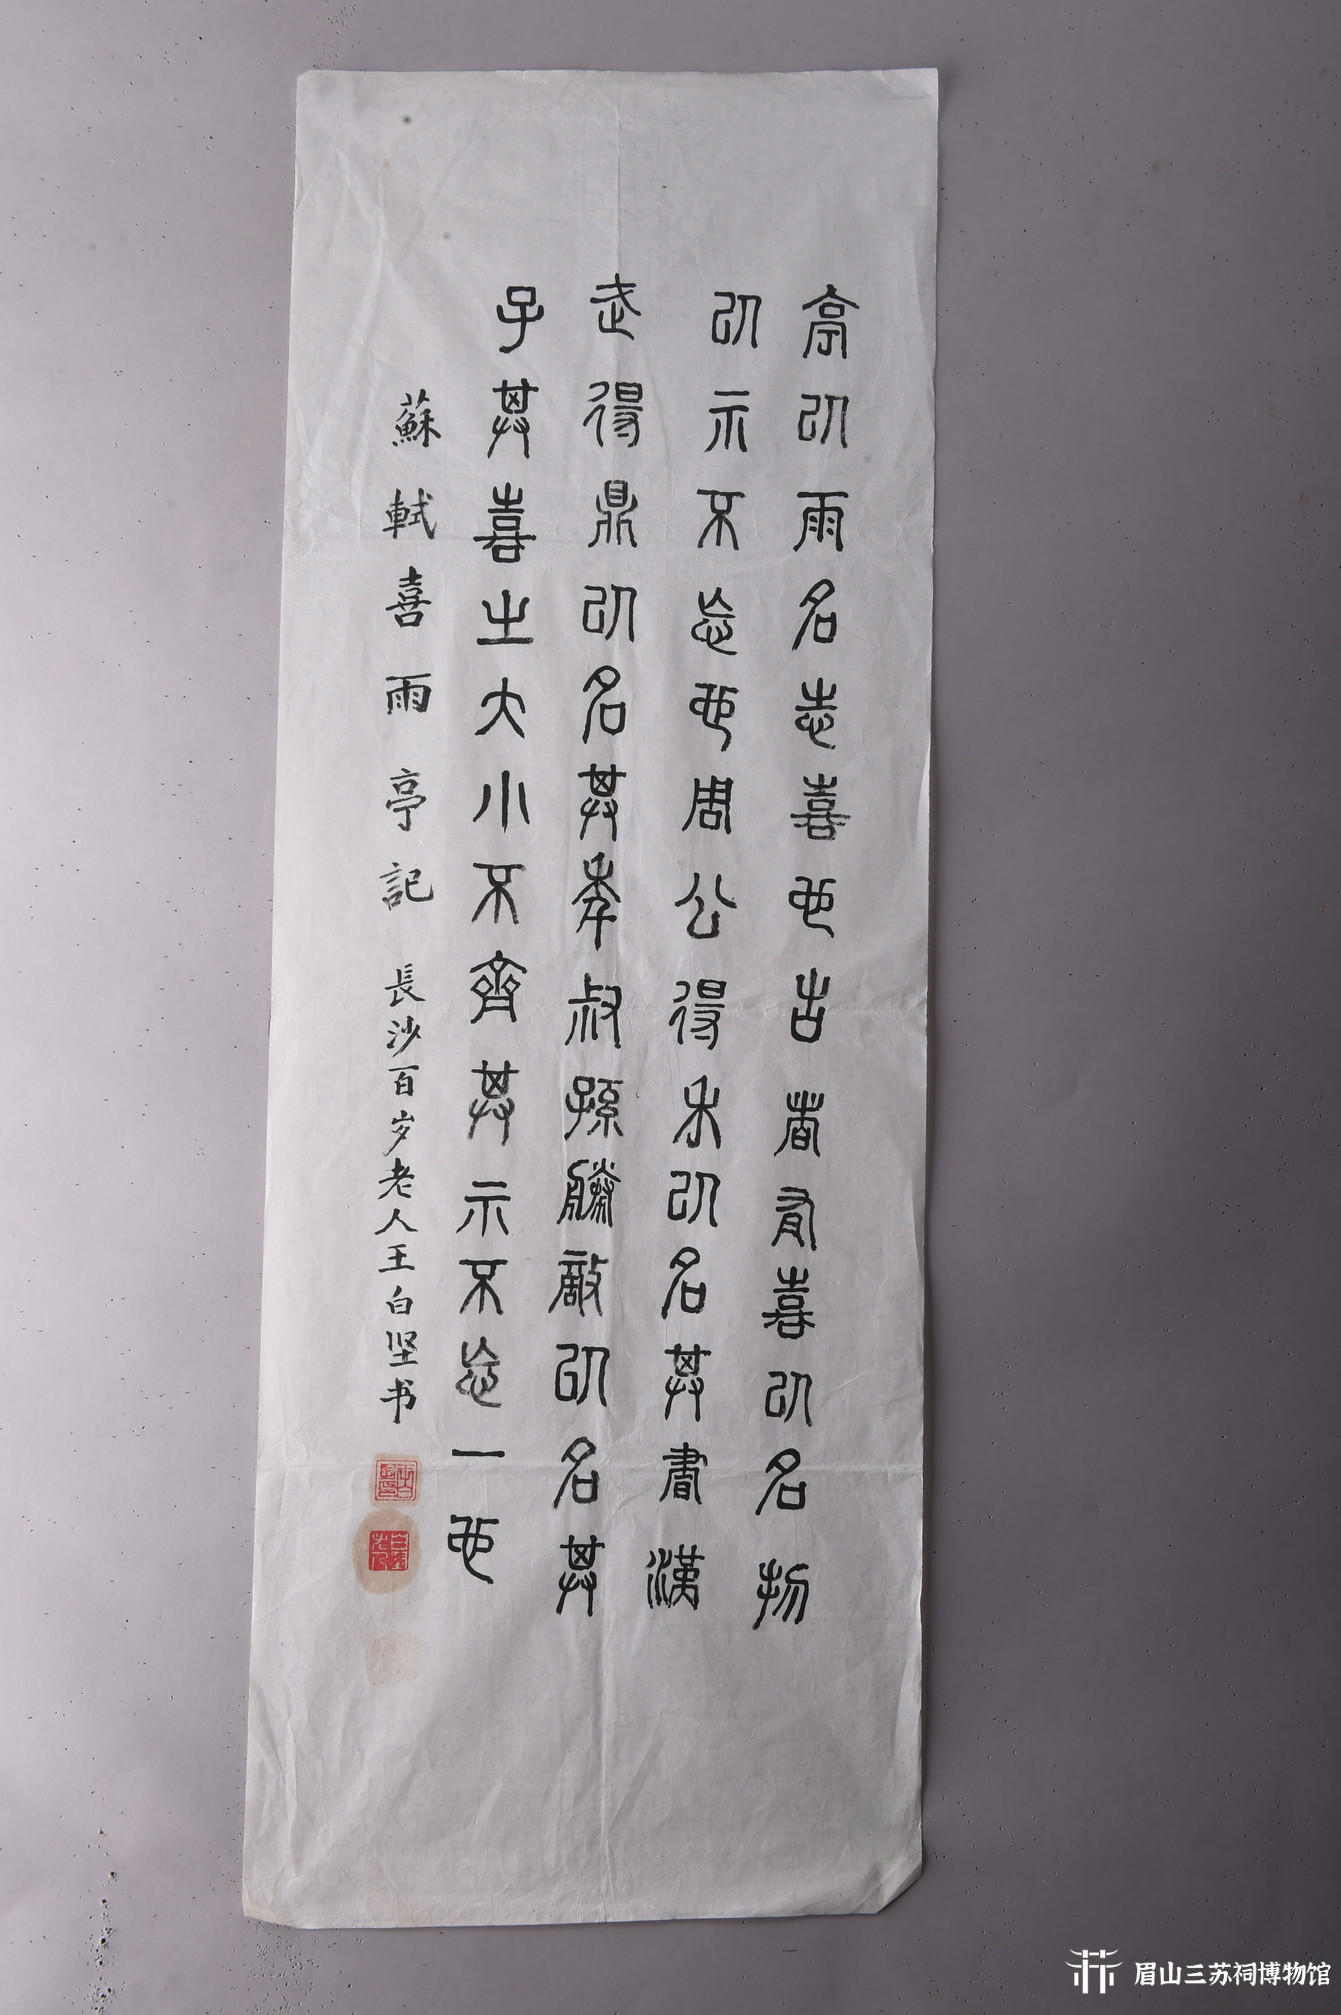 亭以雨名志喜也古者有喜以名物
以示不忘也周公得禾以名其書漢
武得鼎以名其年叔孫勝敵以名其
子其喜之大小不齊其示不忘一也
蘇軾喜雨亭記 長沙百岁老人王白坚书
眉山三苏祠博物馆